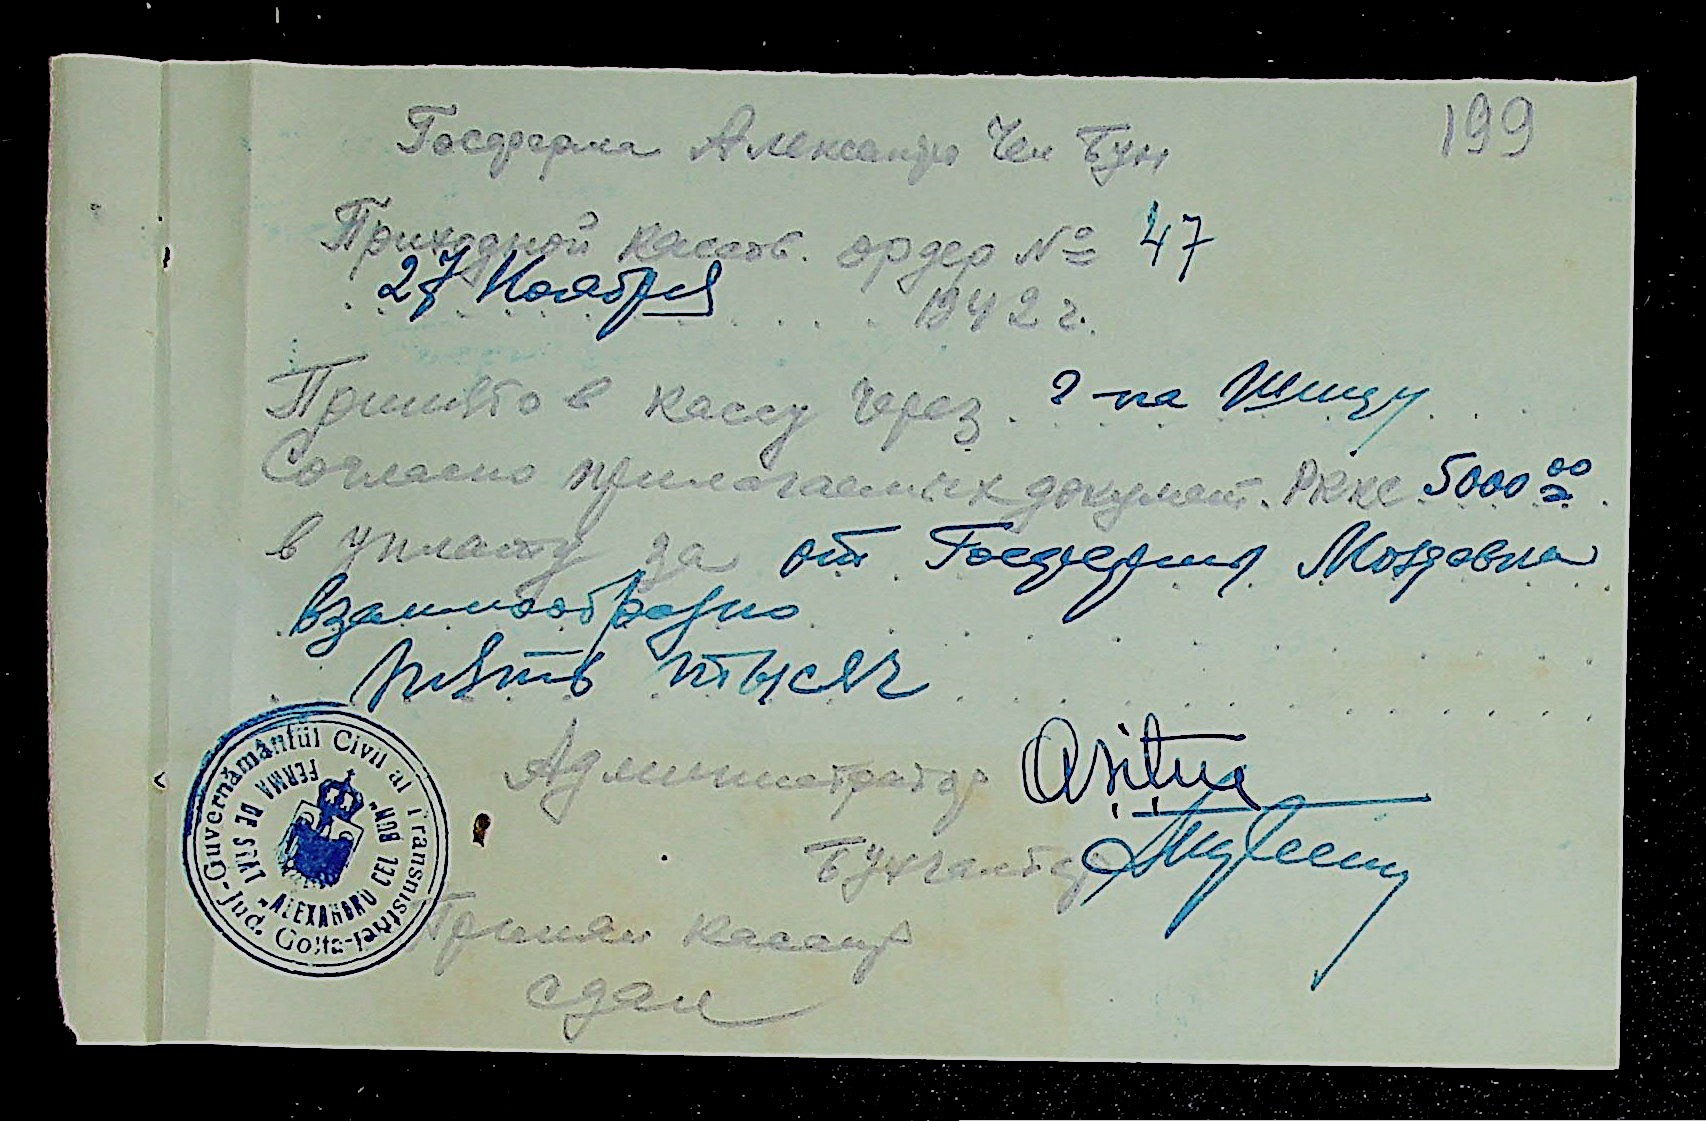 199
Госферма Александру Чел Бун
Приходной кассов. ордер № 47
27 Ноября 1942 г.
Принято в кассу через г-на
Согласно прилагаемых документ. РККС 5000 00
в уплату за от Госфермы Молдовка
взаимообразно
пять тысяч
Администратор
Бухгалтер
Принял кассир
Сдал
Guvernământul Civil al Transnistriei-Jud. Golta-
FERMA DE STAT „ALEXANDRU CEL BUN"